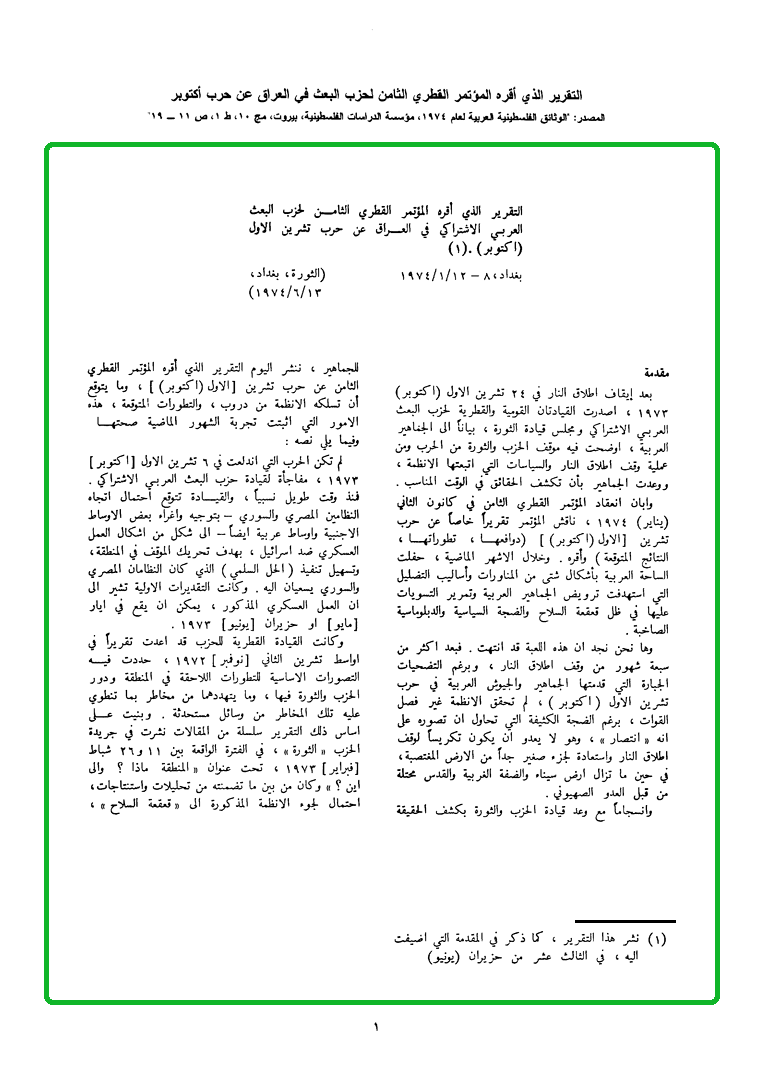 التقرير الذي أقره المؤتمر القطري الثامن لحزب البعث في العراق عن حرب أكتوبر
المصدر: "الوثائق الفلسطينية العربية لعام ١٩٧٤، مؤسسة الدراسات الفلسطينية، بيروت، مج ١٠، ط ١، ص ١١ – ١٩"
التقرير الذي أقره المؤتمر القطري الثامـن لحزب البعث
العربـي الاشتراكي في العـراق عن حرب تشرين الاول
(اكتوبر) .(١)
بغداد، ٨ – ١٩٧٤/١/١٢
(الثورة، بغداد،
١٩٧٤/٦/١٣)
مقدمة
بعد إيقاف اطلاق النار في ٢٤ تشرين الاول (اكتوبر)
١٩٧٣ ، اصدرت القيادتان القومية والقطرية لحزب البعث
العربـي الاشتراكي ومجلس قيادة الثورة ، بياناً الى الجماهير
العربية ، اوضحت فيه موقف الحزب والثورة من الحرب ومن
عملية وقف اطلاق النار والسياسات التي اتبعتها الانظمة ،
ووعدت الجماهير بأن تكشف الحقائق في الوقت المناسب .
وابان انعقاد المؤتمر القطري الثامن في كانون الثاني
(يناير) ١٩٧٤ ، ناقش المؤتمر تقريراً خاصاً عن حرب
تشرين [الاول (اكتوبر)] (دوافعهـا ، تطوراتهـا ،
النتائج المتوقعة) وأقره . وخلال الاشهر الماضية ، حفلت
الساحة العربية بأشكال شتى من المناورات وأساليب التضليل
التي استهدفت ترويض الجماهير العربية وتمرير التسويات
عليها في ظل قعقعة السلاح والضجة السياسية والدبلوماسية
الصاخبة .
وها نحن نجد ان هذه اللعبة قد انتهت . فبعد اكثر من
سبعة شهور من وقف اطلاق النار ، وبرغم التضحيات
الجبارة التي قدمتها الجماهير والجيوش العربية في حرب
تشرين الاول (اكتوبر) ، لم تحقق الانظمة غير فصل
القوات ، برغم الضجة الكثيفة التي تحاول ان تصوره على
انه « انتصار » ، وهو لا يعدو ان يكون تكريساً لوقف
اطلاق النار واستعادة لجزء صغير جداً من الارض المغتصبة،
في حين ما تزال ارض سيناء والضفة الغربية والقدس محتلة
من قبل العدو الصهيوني .
وانسجاماً مع وعد قيادة الحزب والثورة بكشف الحقيقة
للجماهير ، ننشر اليوم التقرير الذي أقره المؤتمر القطري
الثامن عن حرب تشرين [الاول (اكتوبر)] ، وما يتوقع
أن تسلكه الانظمة من دروب ، والتطورات المتوقعة ، هذه
الامور التي اثبتت تجربة الشهور الماضية صحتهـا
وفيما يلي نصه :
لم تكن الحرب التي اندلعت في ٦ تشرين الاول [اكتوبر]
١٩٧٣ ، مفاجأة لقيادة حزب البعث العربـي الاشتراكي .
فمنذ وقت طويل نسبياً ، والقيـادة تتوقع احتمال اتجاه
النظامين المصري والسوري – بتوجيه واغراء بعض الاوساط
الاجنبية واوساط عربية ايضاً – الى شكل من اشكال العمل
العسكري ضد اسرائيل ، بهدف تحريك الموقف في المنطقة،
وتسهيل تنفيذ (الحل السلمي) الذي كان النظامان المصري
والسوري يسعيان اليه . وكانت التقديرات الاولية تشير الى
ان العمل العسكري المذكور ، يمكن ان يقع في ايار
[مايو] او حزيران [يونيو] ١٩٧٣ .
وكانت القيادة القطرية للحزب قد اعدت تقريراً في
اواسط تشرين الثاني [نوفبر] ١٩٧٢ ، حددت فيـه
التصورات الاساسية للتطورات اللاحقة في المنطقة ودور
الحزب والثورة فيها ، وما يتهددهما من مخاطر بما تنطوي
عليه تلك المخاطر من وسائل مستحدثة . وبنيت علـى
اساس ذلك التقرير سلسلة من المقالات نشرت في جريدة
الحزب « الثورة » ، في الفترة الواقعة بين ١١ و٢٦ شباط
[فبراير] ١٩٧٣ ، تحت عنوان «المنطقة ماذا ؟ والى
اين ؟ » وكان من بين ما تضمنته من تحليلات واستنتاجات،
احتمال لجوء الانظمة المذكورة الى « قعقعة السلاح » ،
(١) نشر هذا التقرير ، كما ذكر في المقدمة التي اضيفت
اليه ، في الثالث عشر من حزيران (يونيو)
١